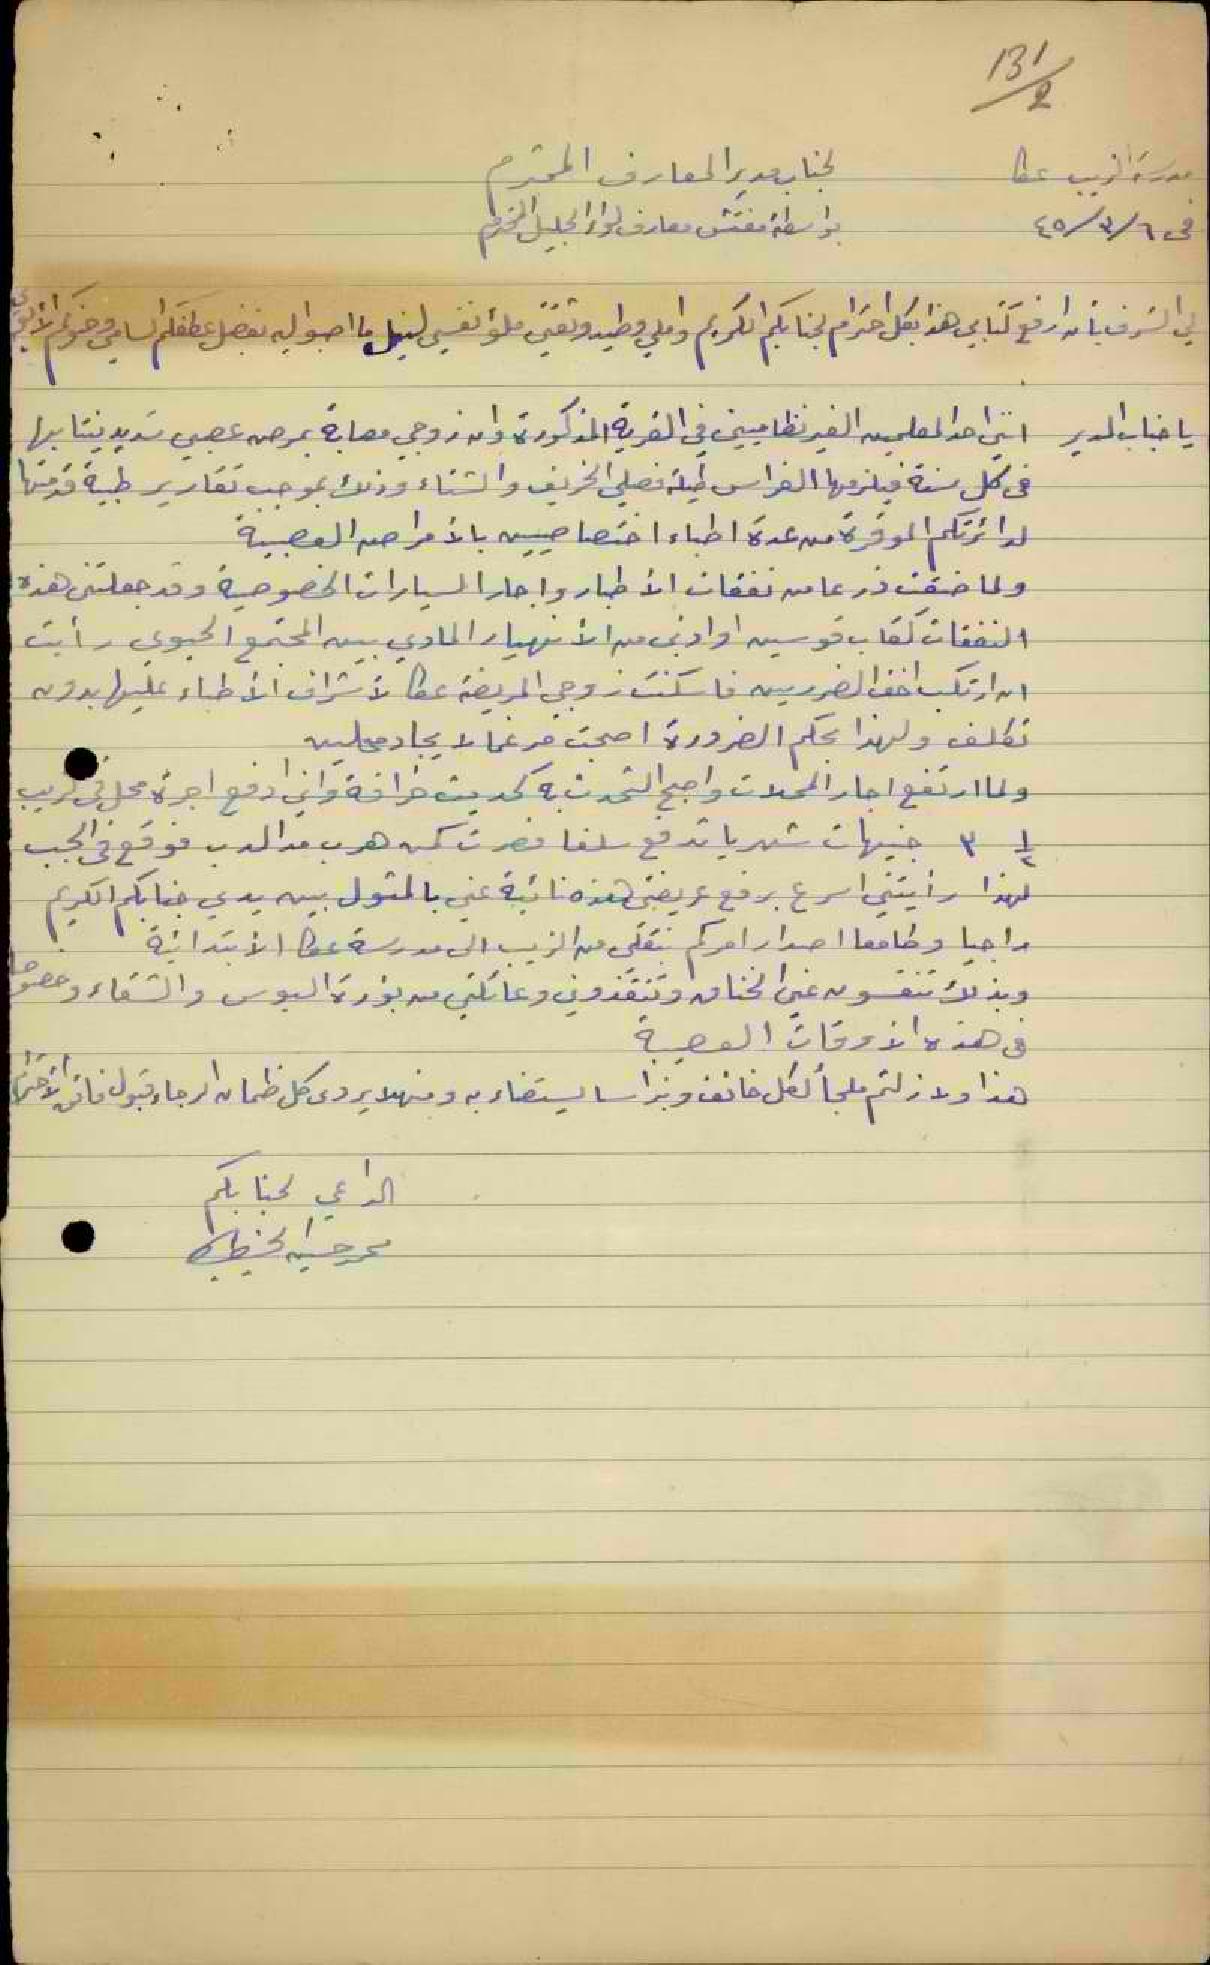 131/2
مدرسة الزيب عكا
لجناب مدير المعارف المحترم
في ٦/٣/٤٥
بواسطة مفتش معارف لواء الجليل المحترم
لي الشرف بأن ارفع كتابي هذا بكل احترام لجنابكم الكريم واملي وطيد وثقتي ملؤ نفسي لنيل ما اصبو اليه بفضل عطفكم السامي وحنوكم الأبوي
يا جناب المدير انني احد المعلمين الغير نظاميين في القرية المذكورة وان زوجي مصابة بمرض عصبي شديد ينتابها
في كل سنة فيلزمها الفراش طيلة فصلي الخريف والشتاء وذلك بموجب تقارير طبية قدمتها
لدائرتكم الموقرة من عدة اطباء اختصاصيين بالأمراض العصبية
ولما ضقت ذرعا من نفقات الأطباء واجار السيارات الخصوصية وقد جعلتني هذه
النفقات كقاب قوسين او ادنى من الأنهيار المادي بين المجتمع الحيوي رأيت
ان ارتكب اخف الضررين فاسكنت زوجي المريضة عكا لأشراف الأطباء عليها بدون
تكلف ولهذا بحكم الضرورة اصبحت مرغما لايجاد محلين
ولما ارتفع اجار المحلات واصبح التحدث به كحديث خرافة واني ادفع اجرة محل في الزيب
٣ ١/٢ جنيهات شهريا تدفع سلفا فصرت كمن هرب من الدب فوقع في الجب
لهذا رأيتني اسرع برفع عريضتي هذه نائبة عني بالمثول بين يدي جنابكم الكريم
راجيا وطامعا اصدار امركم بنقلي من الزيب الى مدرسة عكا الأبتدائية
وبذلك تنفسون عني الخناق وتنقذوني وعائلتي من بؤرة البوس والشقاء وخصوصا
في هذه الأوقات العصيبة
هذا ولا زلتم ملجأ لكل خائف ونبراسا يستضاء به ومنهلا يروي كل ظمآن الرجاء قبول فائق الأحترام
الداعي لجنابكم
محمد حسين الخطيب